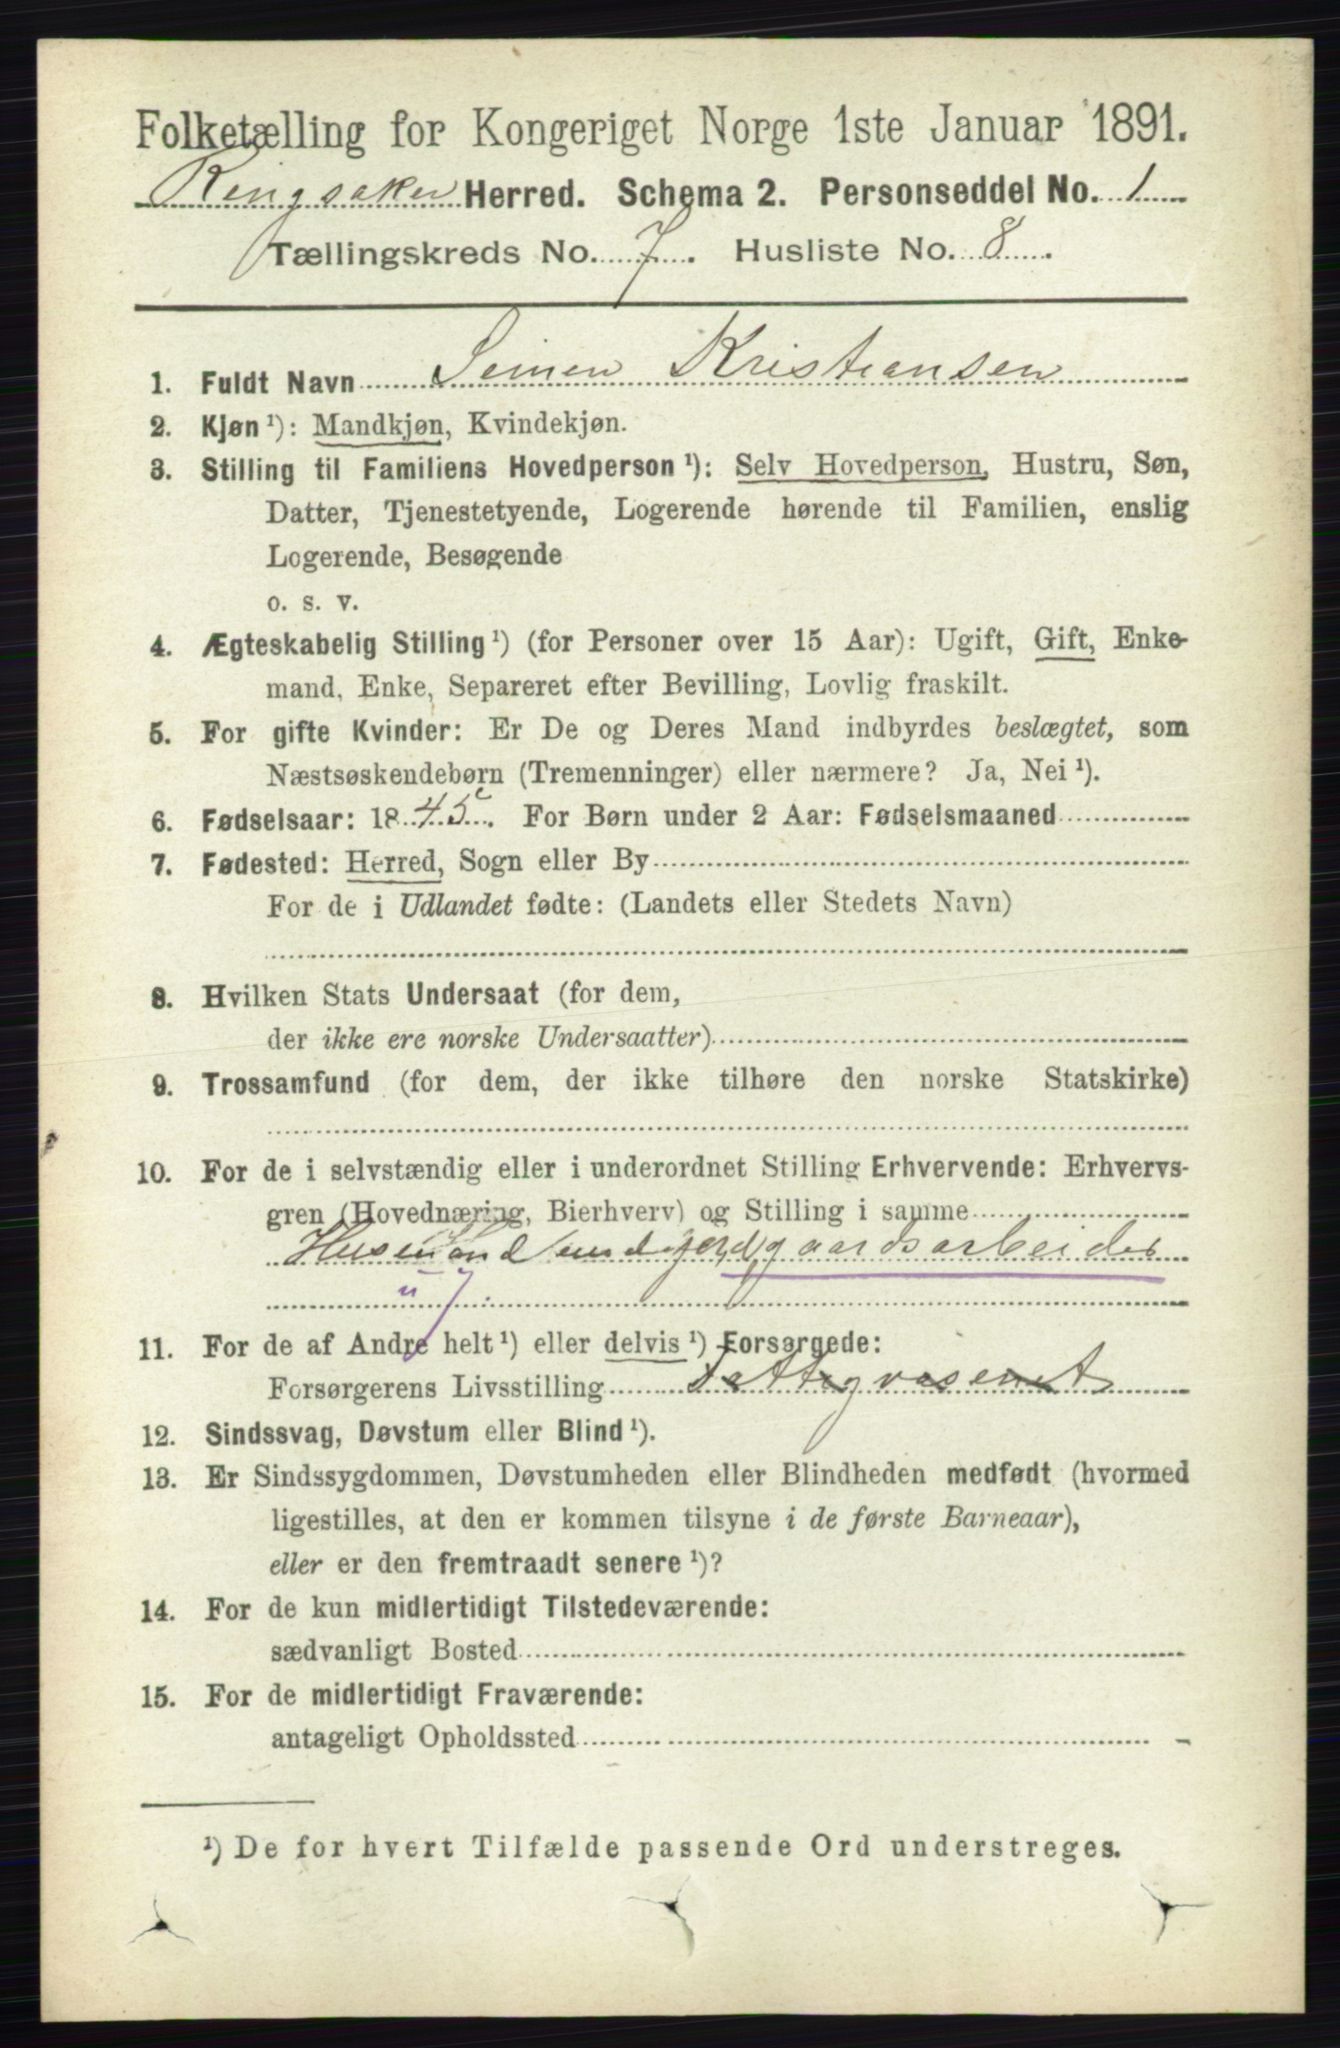 Folketælling for Kongeriget Norge 1ste Januar 1891.
Ringsaker Herred. Schema 2. Personseddel No. 1
Tællingskreds No. 7. Husliste No. 8.
1. Fuldt Navn Simen Kristiansen
2. Kjøn ¹): Mandkjøn, Kvindekjøn.
3. Stilling til Familiens Hovedperson ¹): Selv Hovedperson, Hustru, Søn,
Datter, Tjenestetyende, Logerende hørende til Familien, enslig
Logerende, Besøgende
o. s. v.
4. Ægteskabelig Stilling ¹) (for Personer over 15 Aar): Ugift, Gift, Enke-
mand, Enke, Separeret efter Bevilling, Lovlig fraskilt.
5. For gifte Kvinder: Er De og Deres Mand indbyrdes beslægtet, som
Næstsøskendebørn (Tremenninger) eller nærmere? Ja, Nei ¹).
6. Fødselsaar: 1845. For Børn under 2 Aar: Fødselsmaaned
7. Fødested: Herred, Sogn eller By
For de i Udlandet fødte: (Landets eller Stedets Navn)
8. Hvilken Stats Undersaat (for dem,
der ikke ere norske Undersaatter)
9. Trossamfund (for dem, der ikke tilhøre den norske Statskirke)
10. For de i selvstændig eller i underordnet Stilling Erhvervende: Erhvervs-
gren (Hovednæring, Bierhverv) og Stilling i samme
Husmand med jord, gaardsarbeider
11. For de af Andre helt ¹) eller delvis ¹) Forsørgede:
Forsørgerens Livsstilling Fattigvæsenet
12. Sindssvag, Døvstum eller Blind ¹).
13. Er Sindssygdommen, Døvstumheden eller Blindheden medfødt (hvormed
ligestilles, at den er kommen tilsyne i de første Barneaar),
eller er den fremtraadt senere ¹)?
14. For de kun midlertidigt Tilstedeværende:
sædvanligt Bosted
15. For de midlertidigt Fraværende:
antageligt Opholdssted
¹) De for hvert Tilfælde passende Ord understreges.